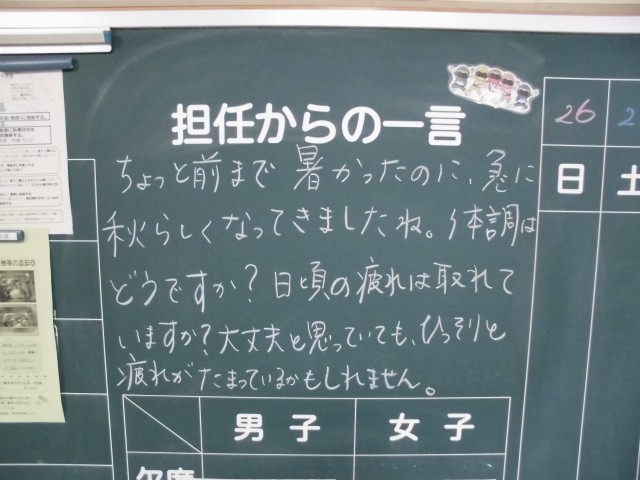 担任からの一言
ちょっと前まで暑かったのに、急に
秋らしくなってきましたね。体調は
どうですか？日頃の疲れは取れて
いますか？大丈夫と思っていても、ひっそりと
疲れがたまっているかもしれません。
男子
女子
欠席
26
2
日
土